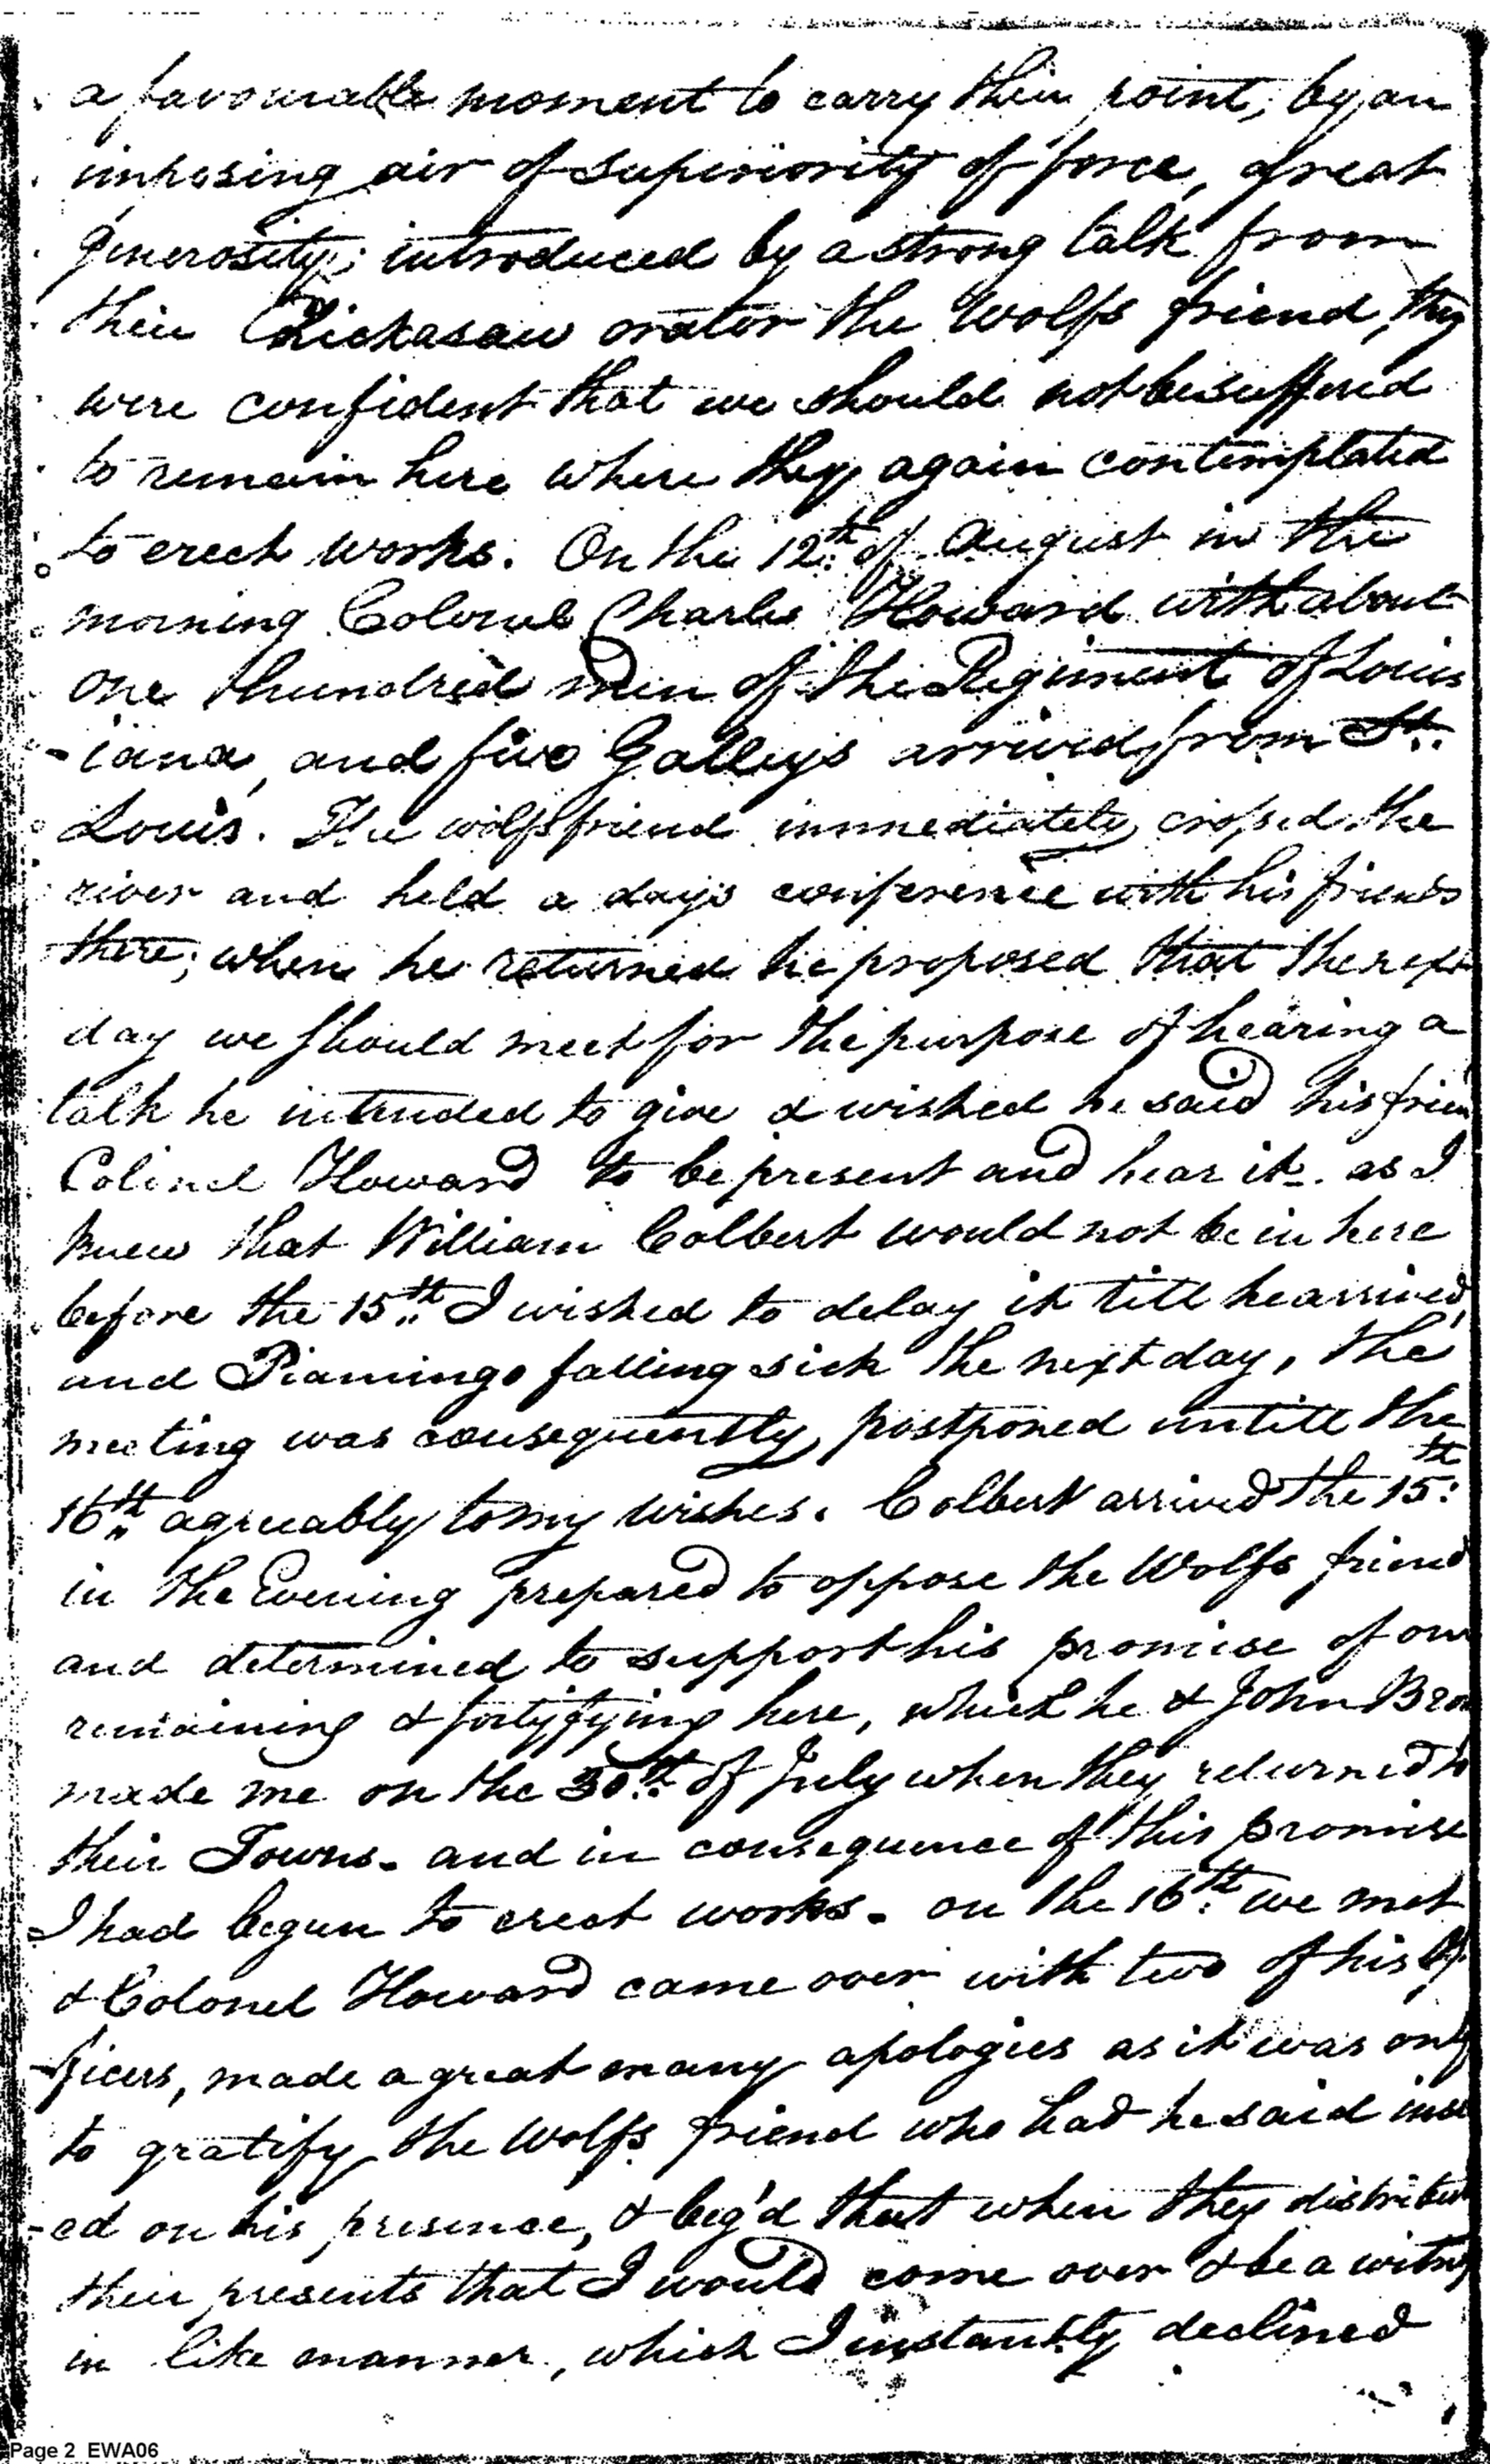 a favourable moment to carry their point, by an
imposing air of superiority of force, great
generosity; introduced by a strong talk from
their Chickasaw orator the Wolfs friend, they
were confident that we should not be suffered
to remain here where they again contemplated
to erect works. On the 12th of August in the
morning Colonel Charles Howard with about
one hundred men of the Regiment of Louis
-iana, and five Galleys arrived from St.
Louis. The wolfs friend immediately crossed the
river and held a days conference with his friends
there; when he returned he proposed that the next
day we should meet for the purpose of hearing a
talk he intended to give & wished he said his frien
Colonel Howard to be present and hear it. as I
knew that William Colbert would not be in here
before the 15th I wished to delay it till he arrived,
and Piamingo falling sick the next day, the
meeting was consequently, postponed untill the
16th agreeably to my wishes. Colbert arrived the 15th
in the Evening prepared to oppose the Wolfs friend
and determined to support his promise of our
remaining & fortifying here, which he & John Bro
made me on the 30th of July when they returned to
their Towns. and in consequence of this promise
I had begun to erect works. on the 16th we met
& Colonel Howard came over with two of his Of
-ficers, made a great many apologies as it was only
to gratify the Wolfs friend who had he said insi
-ed on his presence, & beg'd that when they distribut
their presents that I would come over & be a witns
in like manner, which I instantly declined
Page 2 EWA06